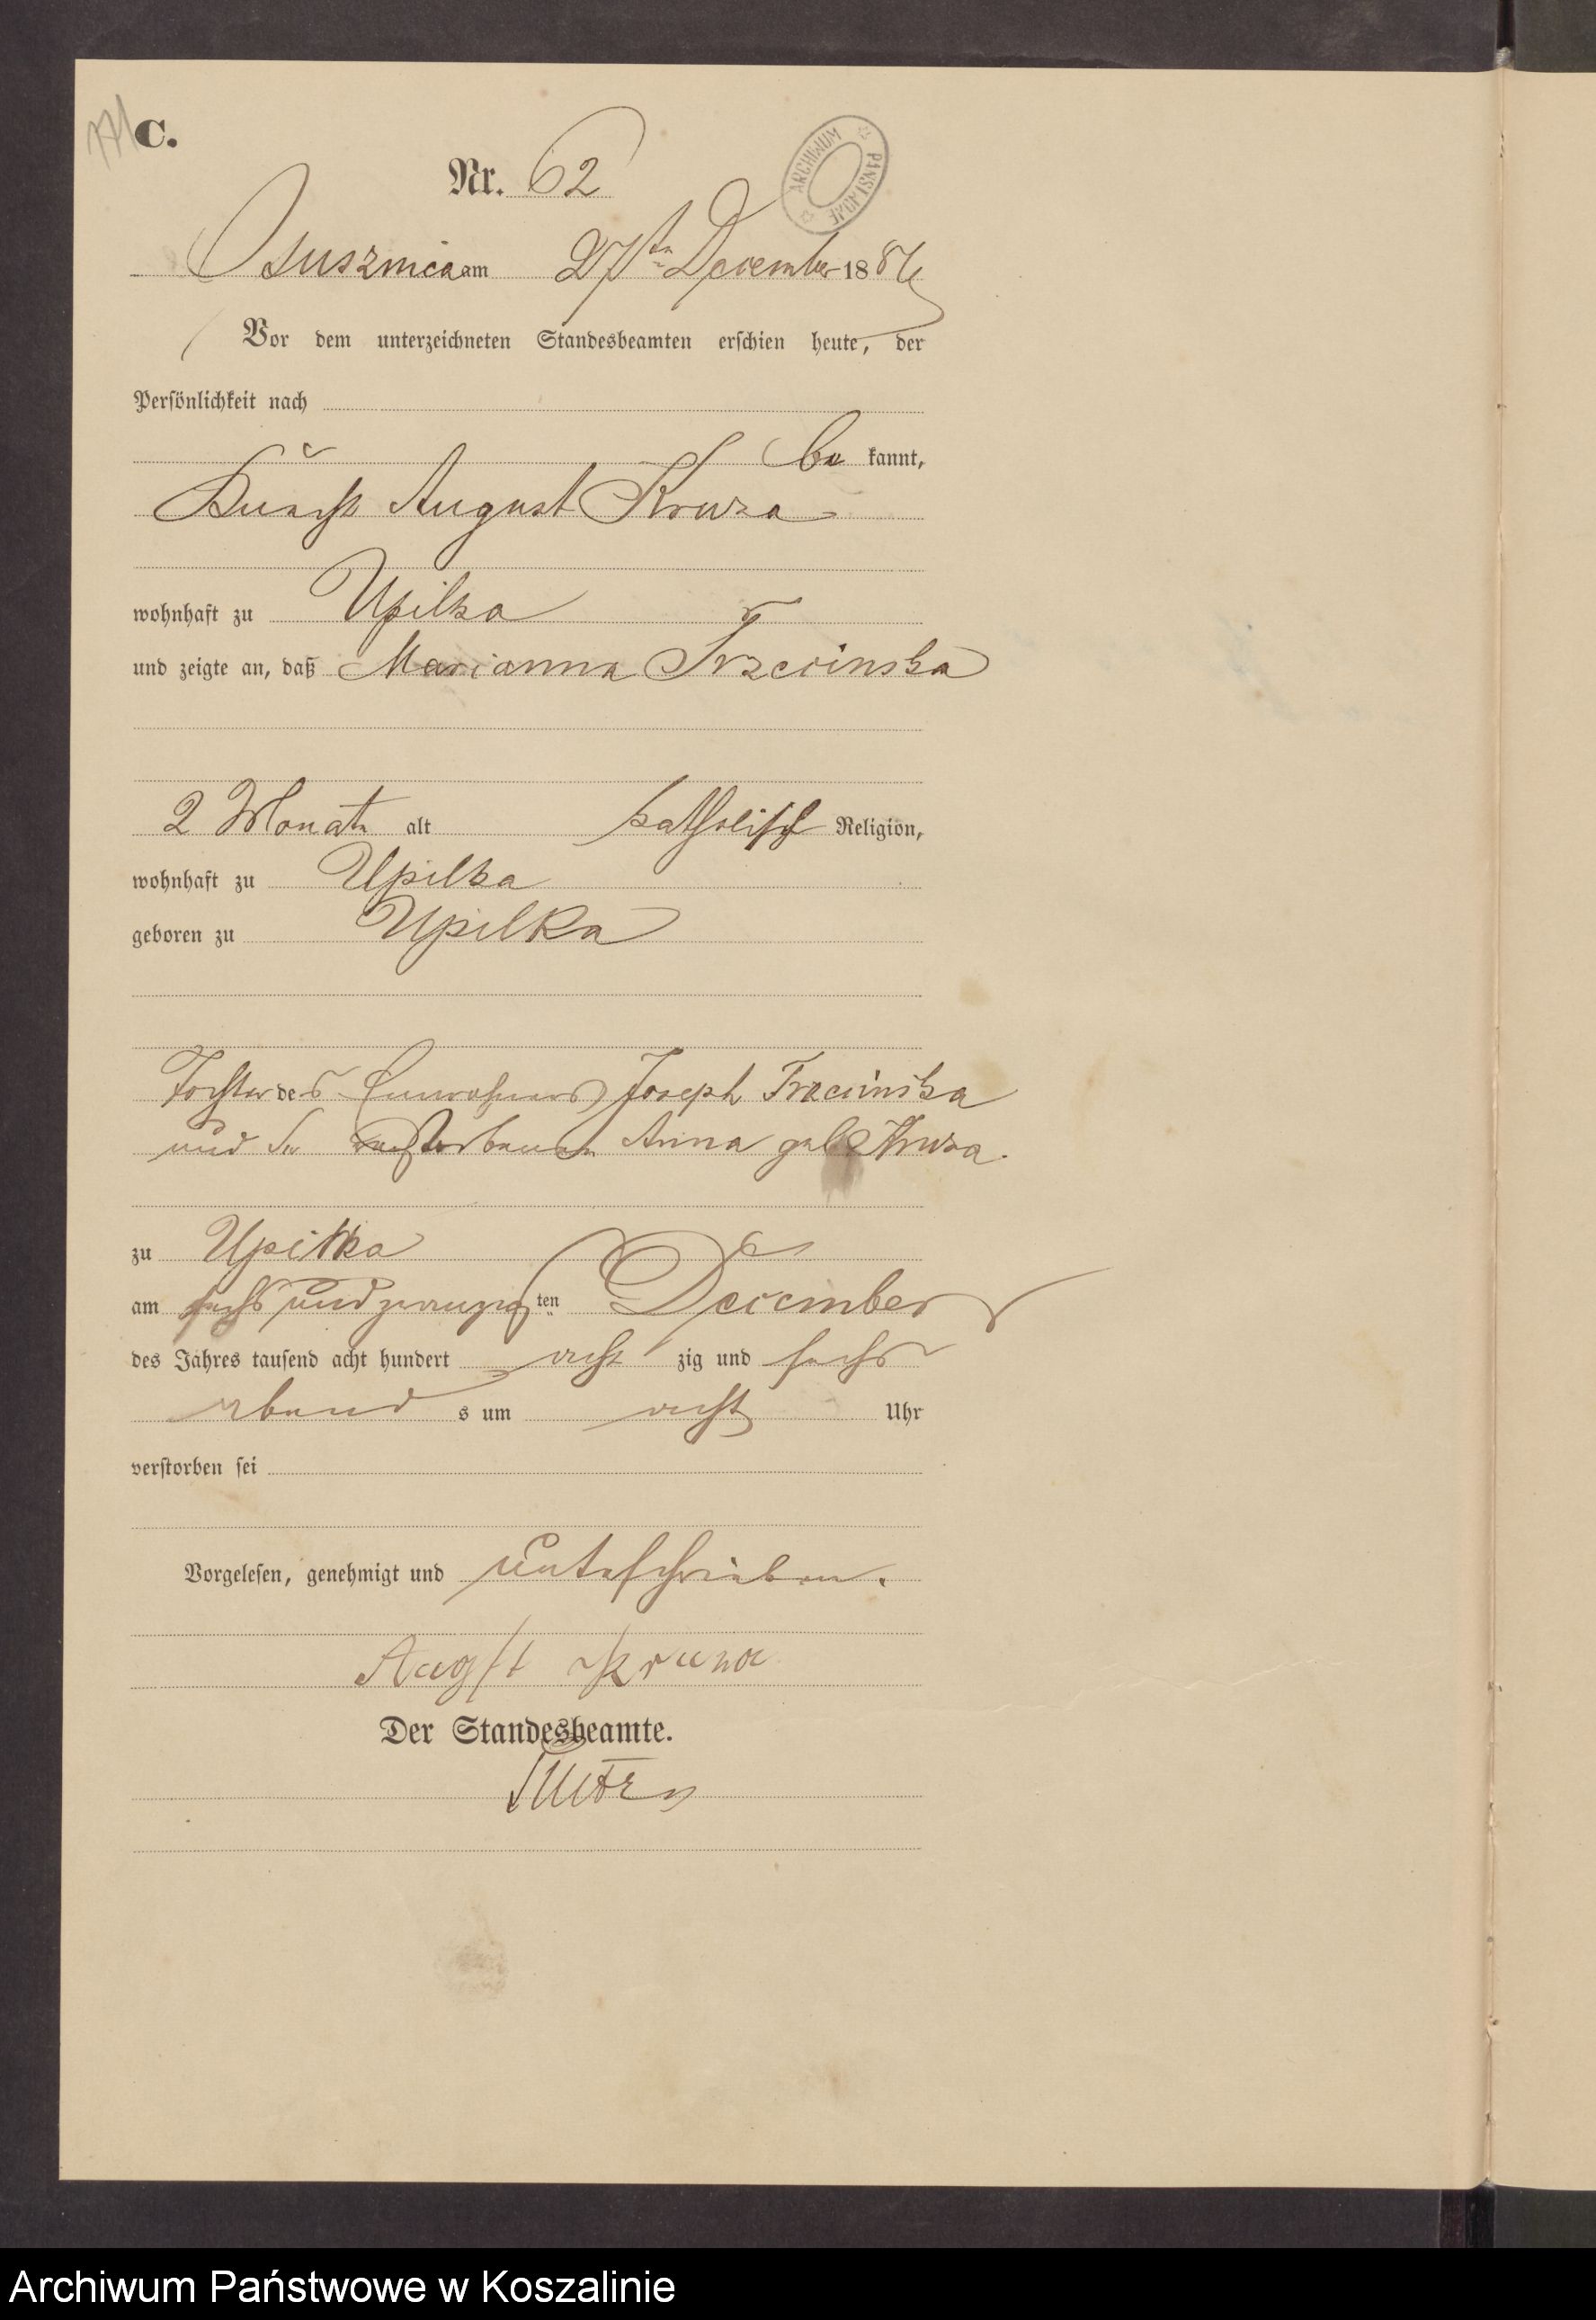 C.
Nr. 62
ARCHIWUM PAŃSTWOWE
Osusznica am 27ten December 1886
Vor dem unterzeichneten Standesbeamten erschien heute, der
Persönlichkeit nach
be kannt,
August Kruza
wohnhaft zu Upilka
und zeigte an, daß Marianna Trzecinska
2 Monate alt katholisch Religion,
wohnhaft zu Upilka
geboren zu Upilka
Tochter des Einwohners Joseph Trzecinska
und der verstorbenen Anna geb Kruza.
zu Upilka
am sechs und zwanzigsten December
des Jahres tausend acht hundert acht zig und sechs
abend s um acht Uhr
verstorben sei
Vorgelesen, genehmigt und unterschrieben.
Augst Kruza
Der Standesbeamte.
Archiwum Państwowe w Koszalinie